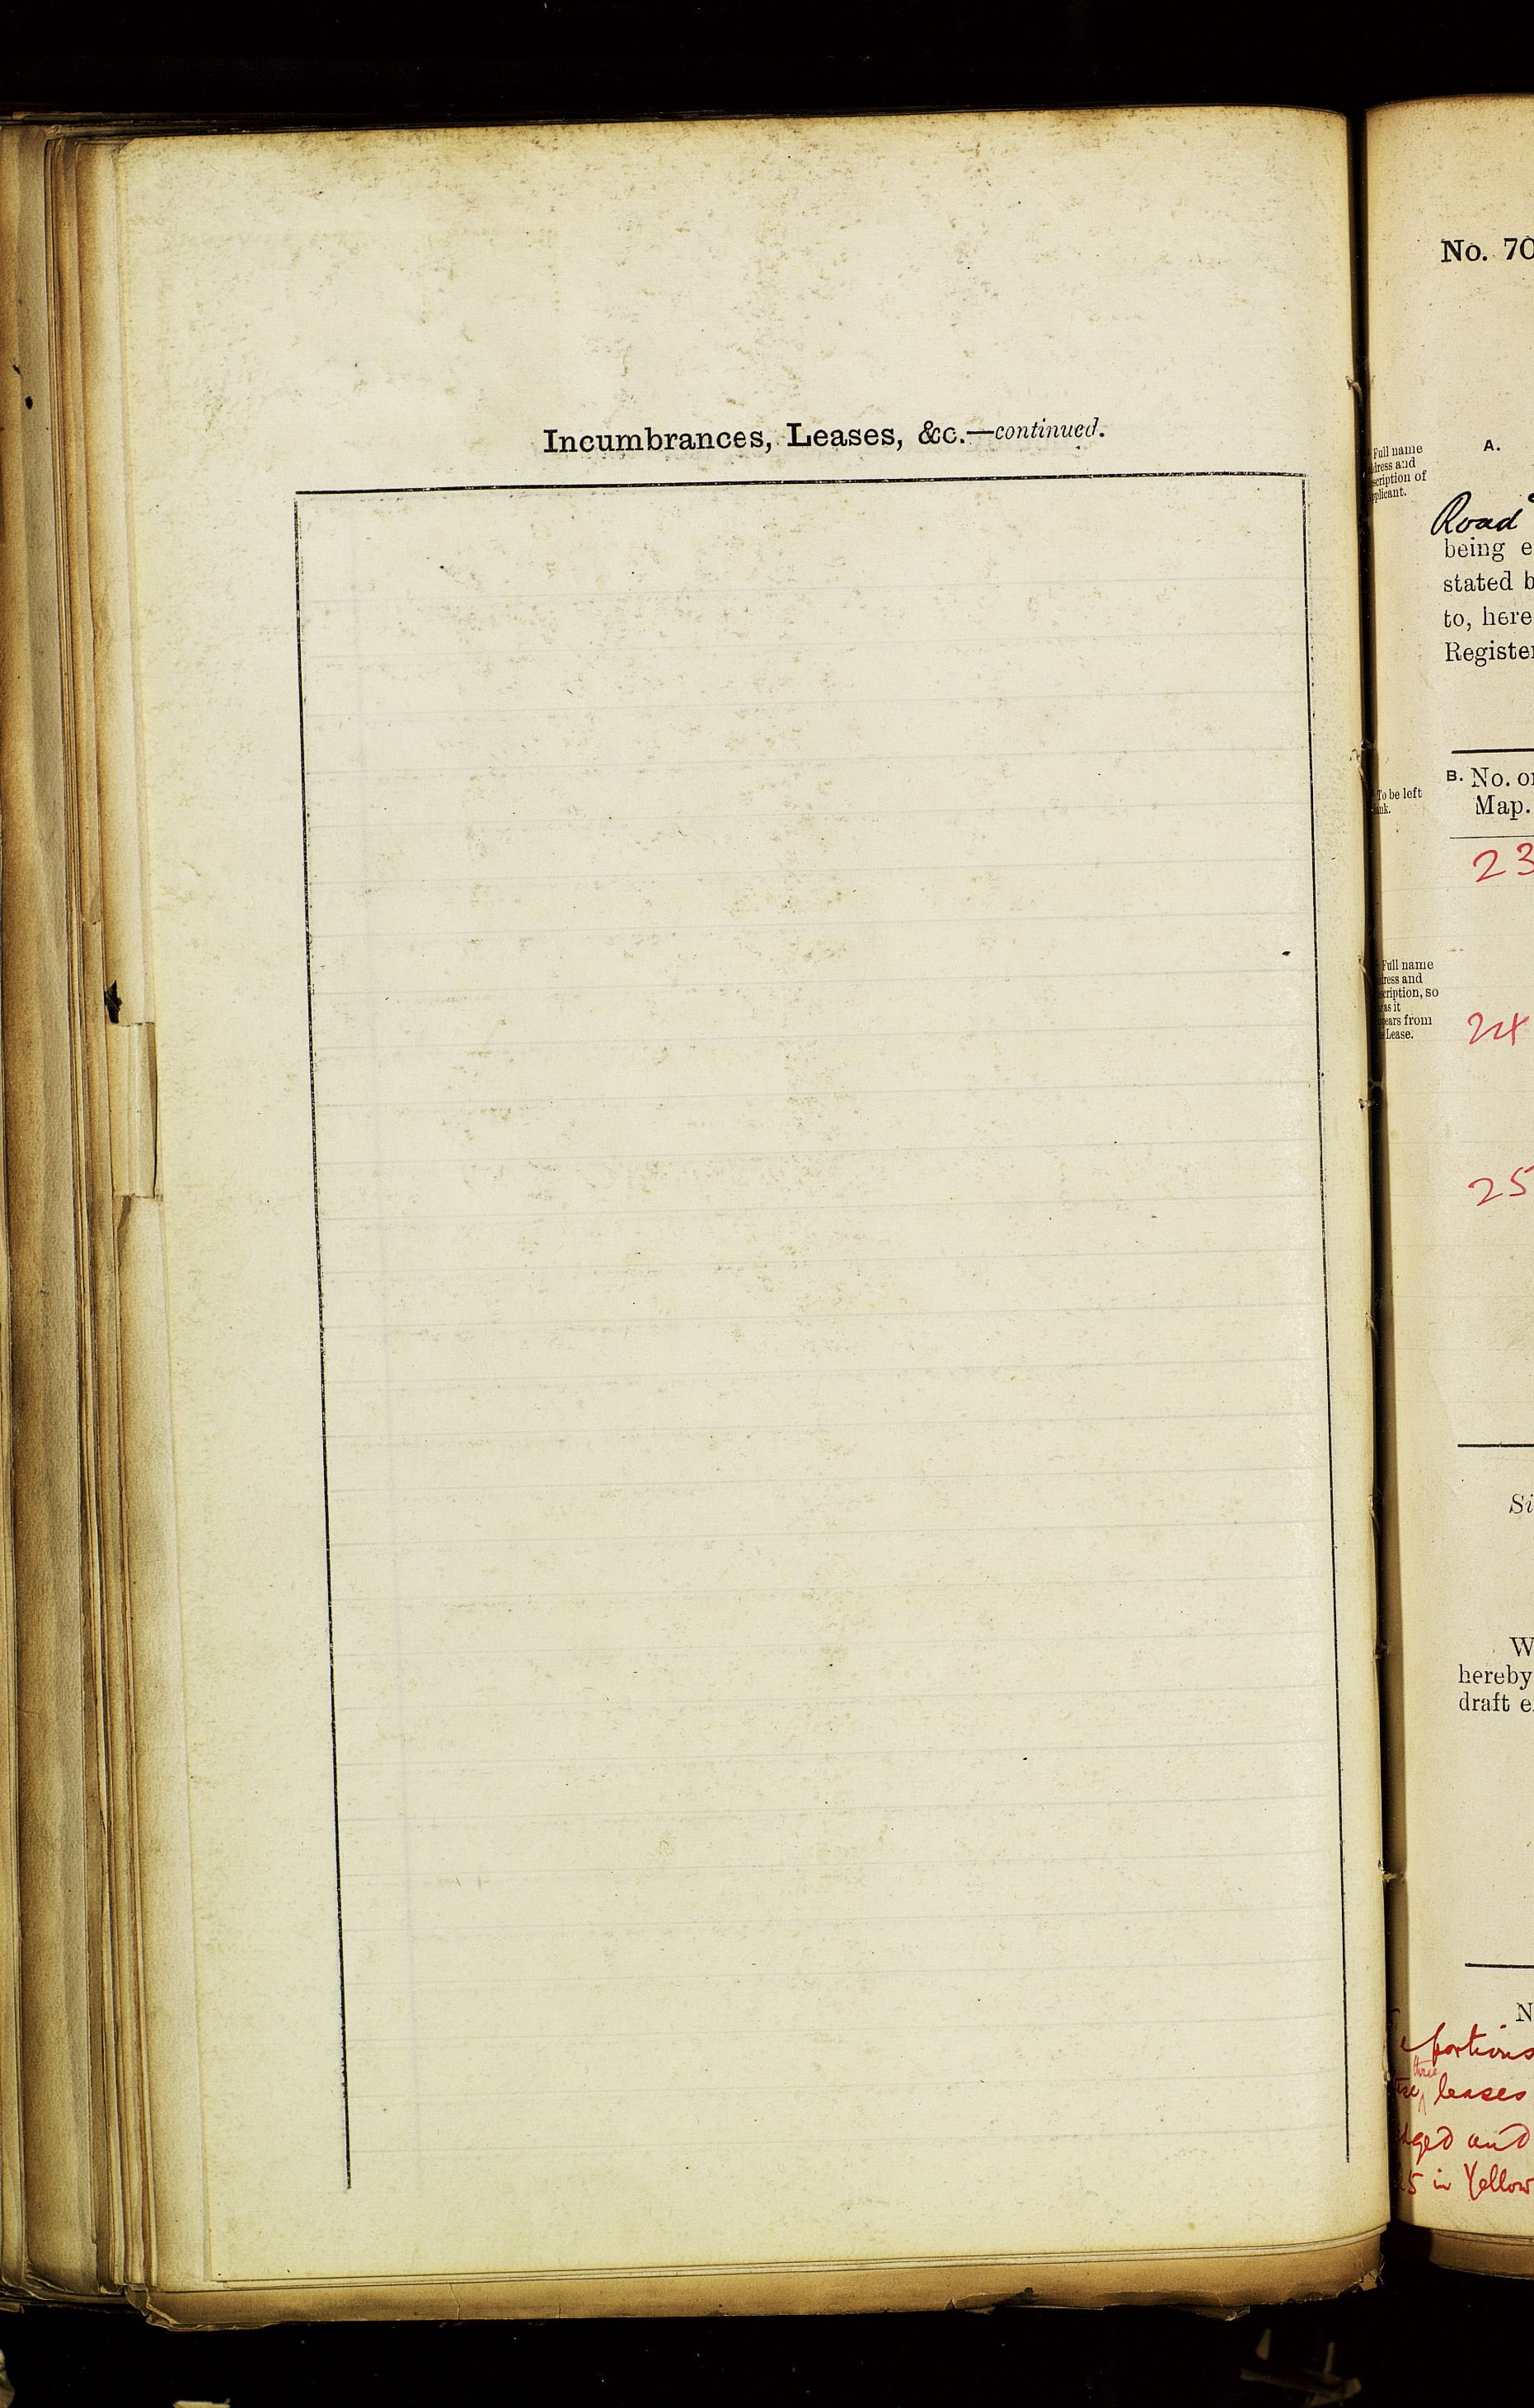 Incumbrances, Leases, &c.—continued.
No. 70
Full name
dress and
scription of
pplicant.
A.
Road
being e
stated b
to, here
Register
To be left
ank.
B. No. on
Map.
23
Full name
dress and
scription, so
as it
pears from
Lease.
24
25
Si
W
hereby
draft e
N
portions
three
leases
dged and
25 in Yellow